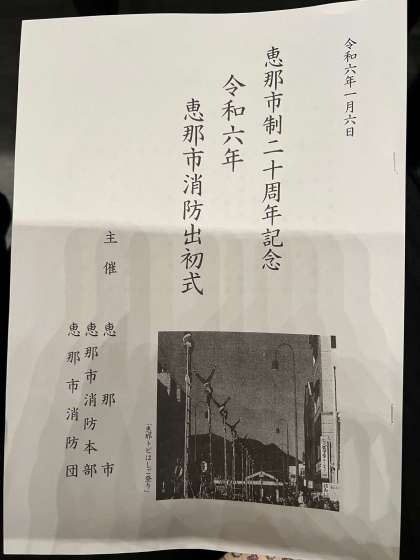 令和六年一月六日
恵那市制二十周年記念
令和六年
恵那市消防出初式
主催
恵那市
恵那市消防本部
恵那市消防団
「恵那トビはしご登り」